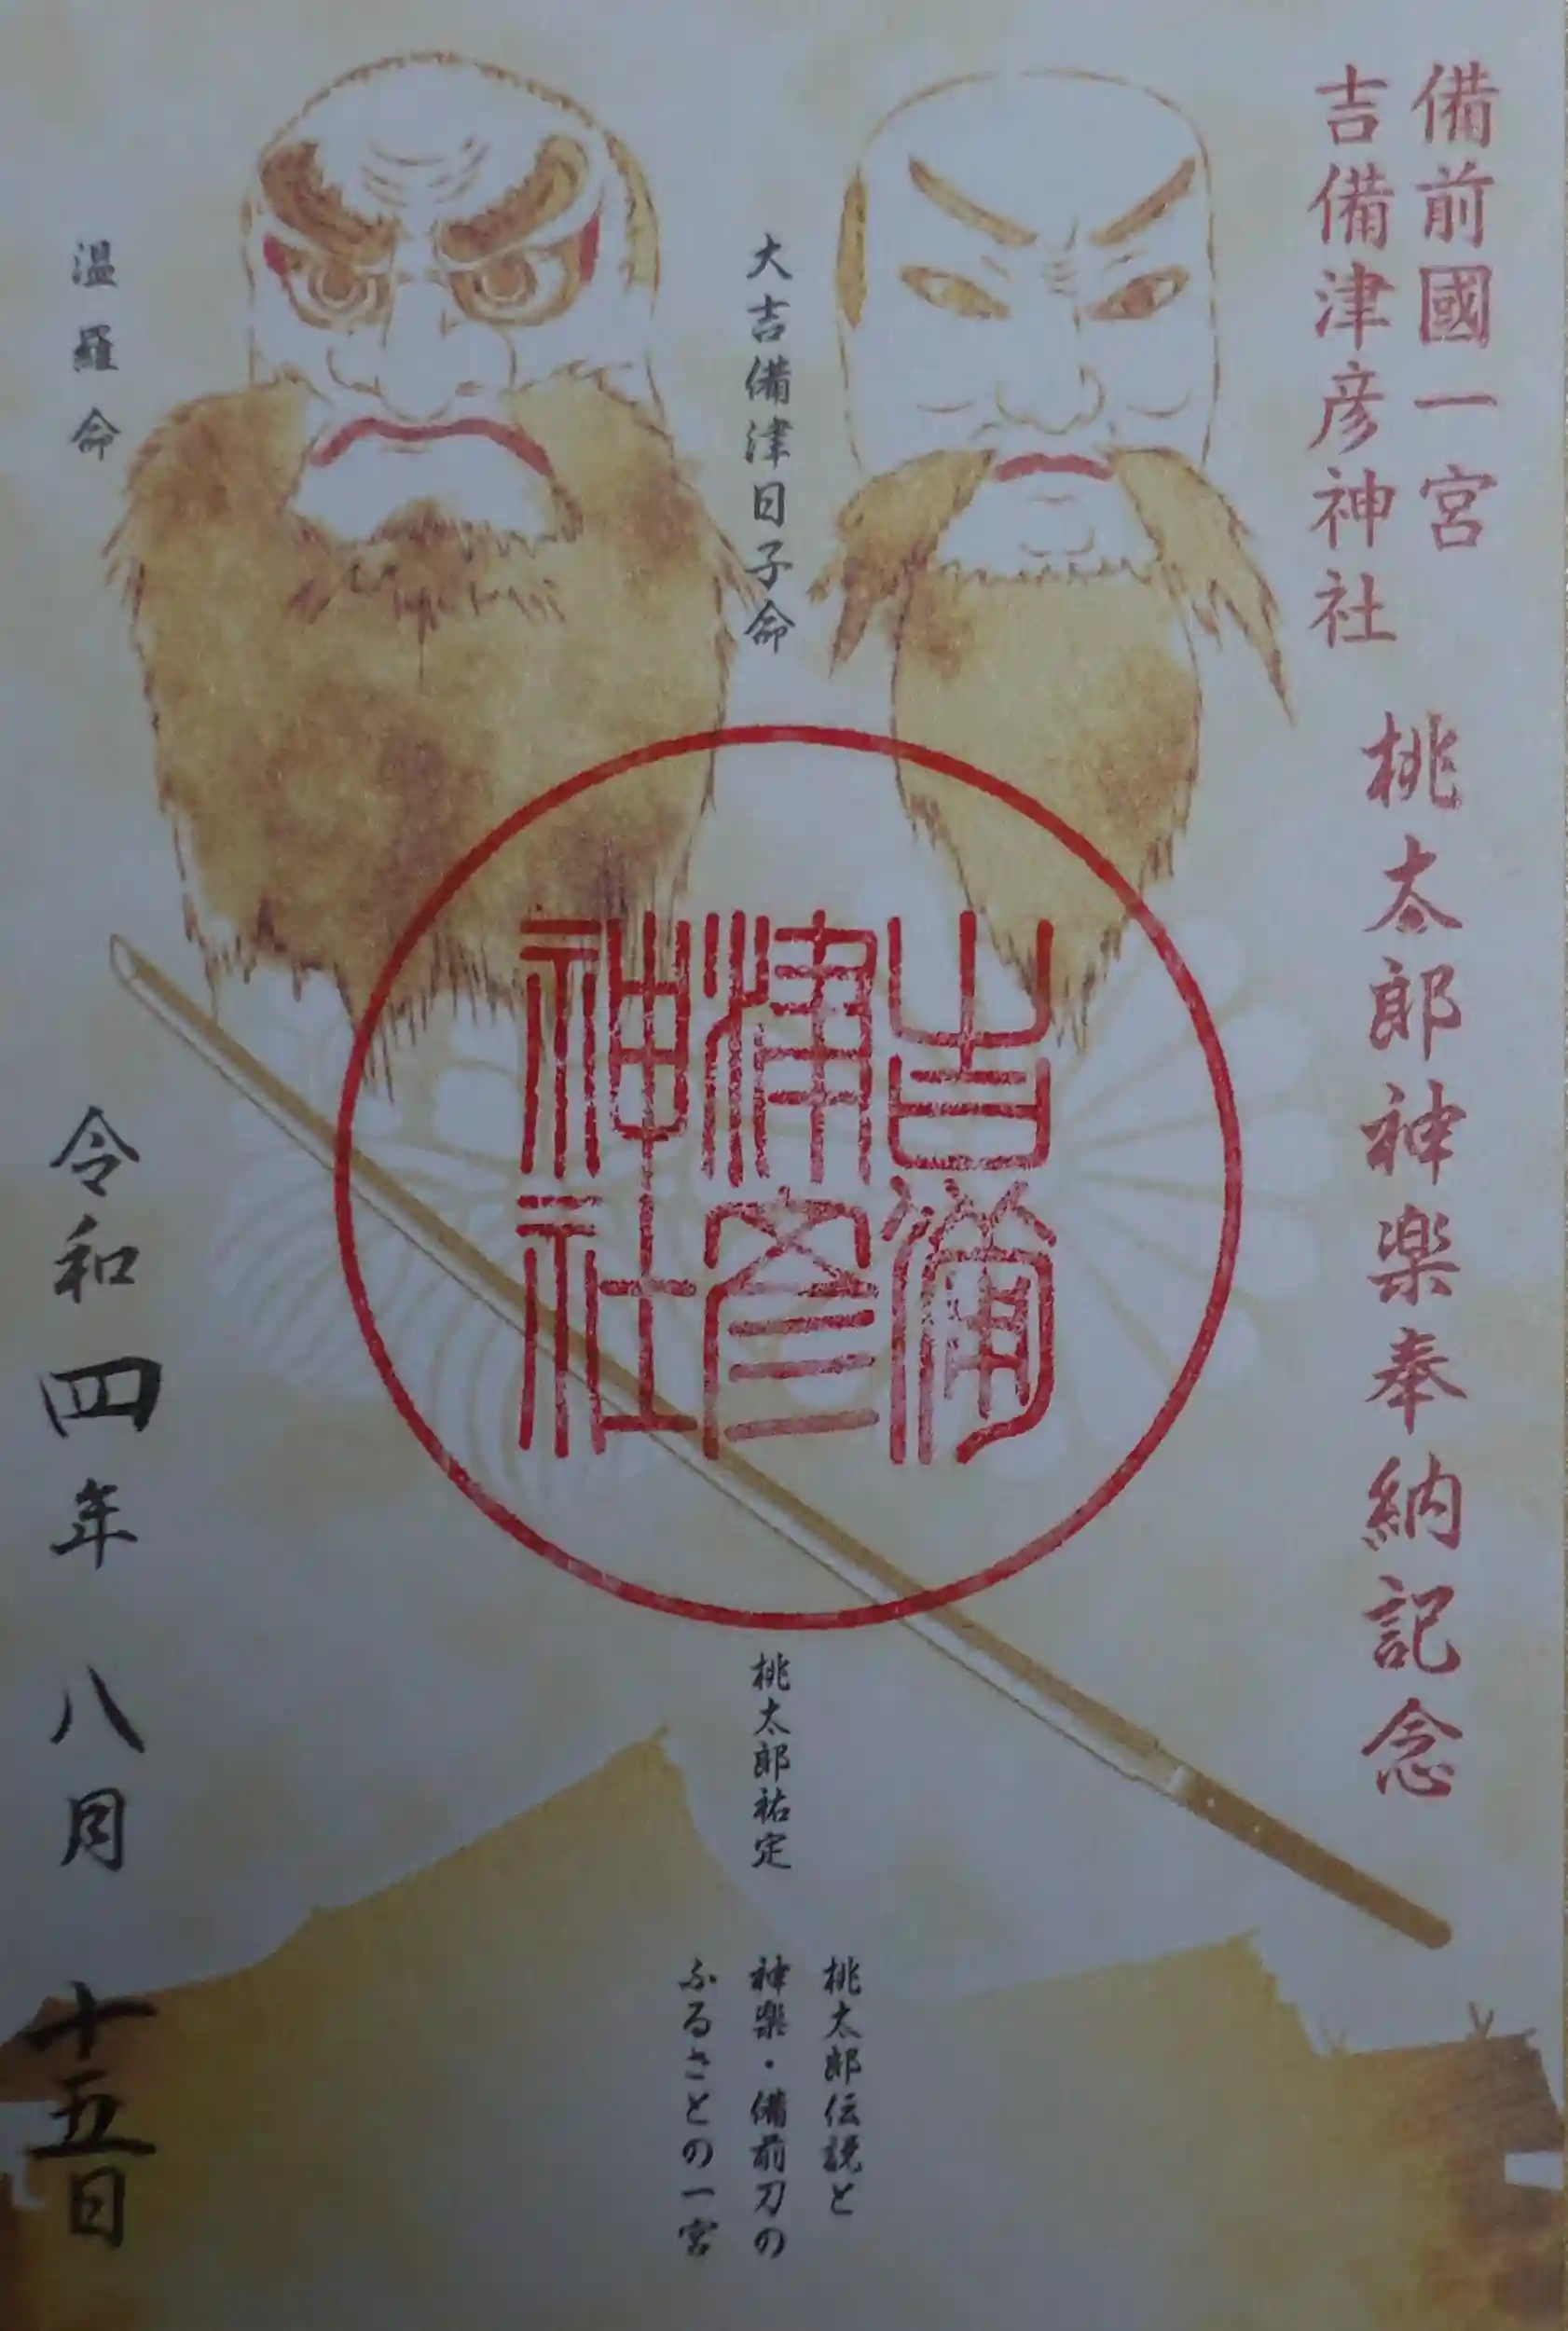 備前國一宮
吉備津彦神社
桃太郎神楽奉納記念
大吉備津日子命
温羅命
吉備
津彦
神社
桃太郎祐定
桃太郎伝説と
神楽・備前刀の
ふるさとの一宮
令和四年八月十五日